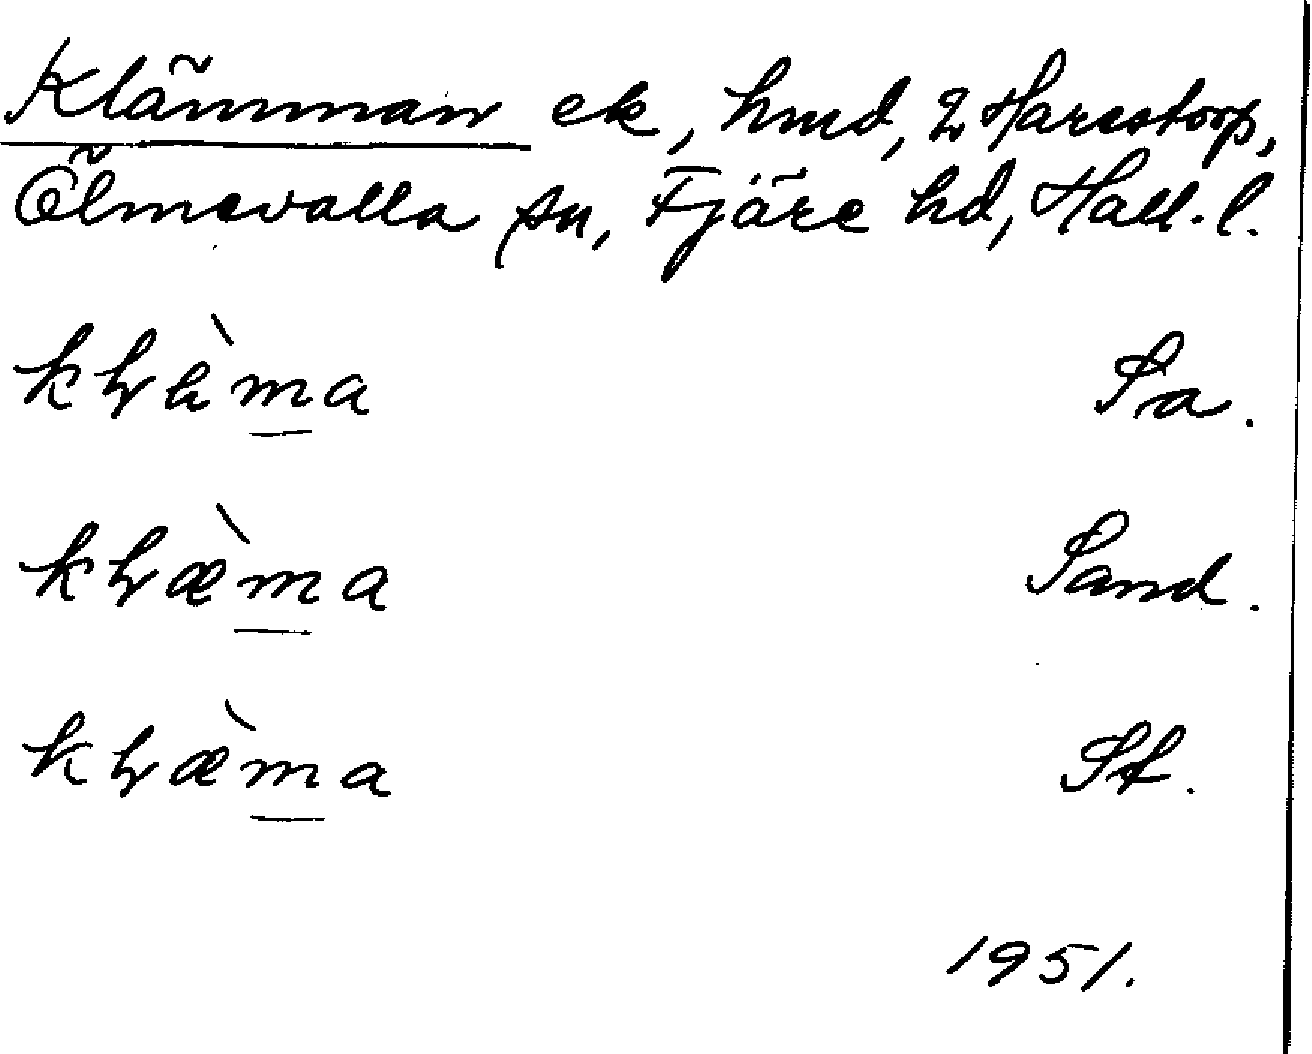 Klämman ek, hmd, 2 Harestorp,
Ölmevalla sn, Fjäre hd, Hall. l.
Sa.
kḷæ̀ma Sand.
kḷæ̀ma St.
1951.